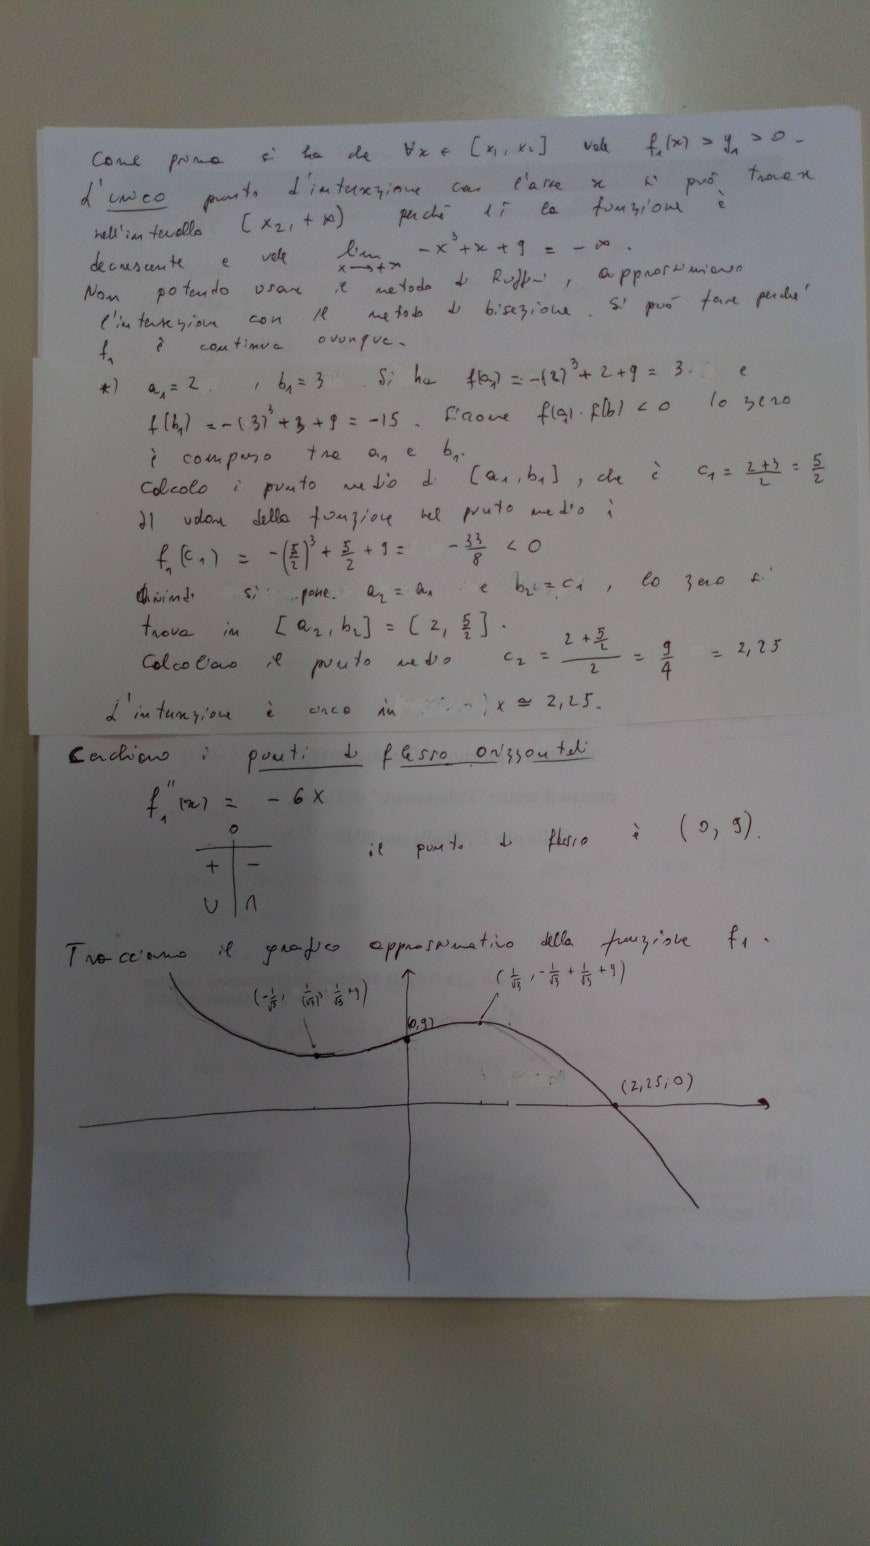 Come prima si ha che ∀x ∈ [x₁, x₂] vale f₁(x) > y₁ > 0 -
L'unico punto d'intersezione con l'asse x si può trovare
nell'intervallo [x₂, +∞) perché lì la funzione è
decrescente e vale lim x→+∞ -x³+x+9 = -∞.
Non potendo usare il metodo di Ruffini, approssimiamo
l'intersezione con il metodo di bisezione. Si può fare perché
f₁ è continua ovunque.
*) a₁=2 , b₁=3 Si ha f(a₁) = -(2)³+2+9 = 3. e
f(b₁) = -(3)³+3+9 = -15. Siccome f(a₁)·f(b₁) < 0 lo zero
è compreso tra a₁ e b₁.
Calcolo i punto medio di [a₁, b₁], che è c₁ = (2+3)/2 = 5/2
Il valore della funzione nel punto medio è
f₁(c₁) = -(5/2)³ + 5/2 + 9 = -33/8 < 0
Quindi si pone a₂ = a₁ e b₂ = c₁, lo zero si
trova in [a₂, b₂] = [2, 5/2].
Calcoliamo il punto medio c₂ = (2 + 5/2)/2 = 9/4 = 2,25
L'intersezione è circa in x ≃ 2,25.
Cerchiamo i punti di flesso orizzontali
f₁''(x) = - 6x
0
+ | -
∪ | ∩
il punto di flesso è (0, 9).
Tracciamo il grafico approssimativo della funzione f₁.
(1/√3, -1/√3 + 1/√3 + 9)
(-1/√3, 1/(√3)³ - 1/√3 + 9)
(0,9)
(2,25;0)